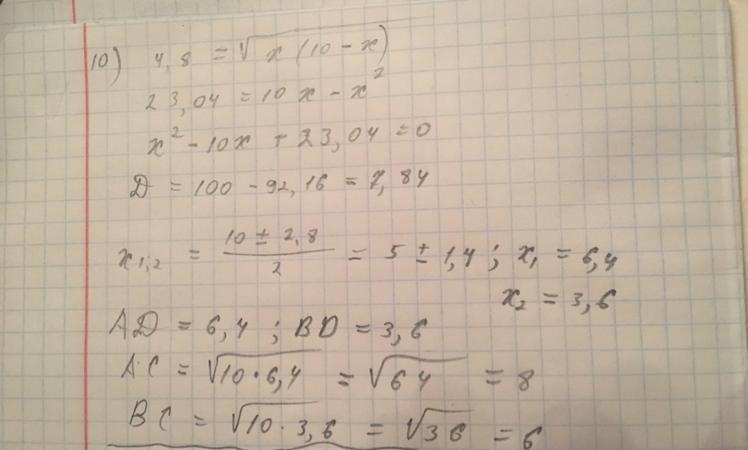 10) 4,8 = √x(10 - x)
23,04 = 10x - x²
x² - 10x + 23,04 = 0
D = 100 - 92,16 = 7,84
x₁,₂ = (10 ± 2,8)/2 = 5 ± 1,4 ; x₁ = 6,4
x₂ = 3,6
AD = 6,4 ; BD = 3,6
AC = √10·6,4 = √64 = 8
BC = √10·3,6 = √36 = 6